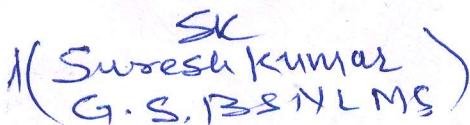 SK
(Suresh Kumar)
G.S. BSNLMS